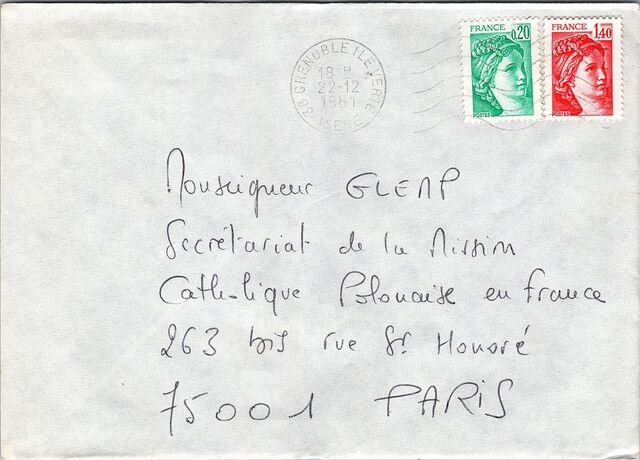 FRANCE 0,20
POSTES
FRANCE 1,40
POSTES
38 GRENOBLE ILE VERTE
18 H
22-12
1981
ISERE
Monseigneur GLEMP
Secrétariat de la Mission
Catholique Polonaise en France
263 bis rue St Honoré
75001 PARIS